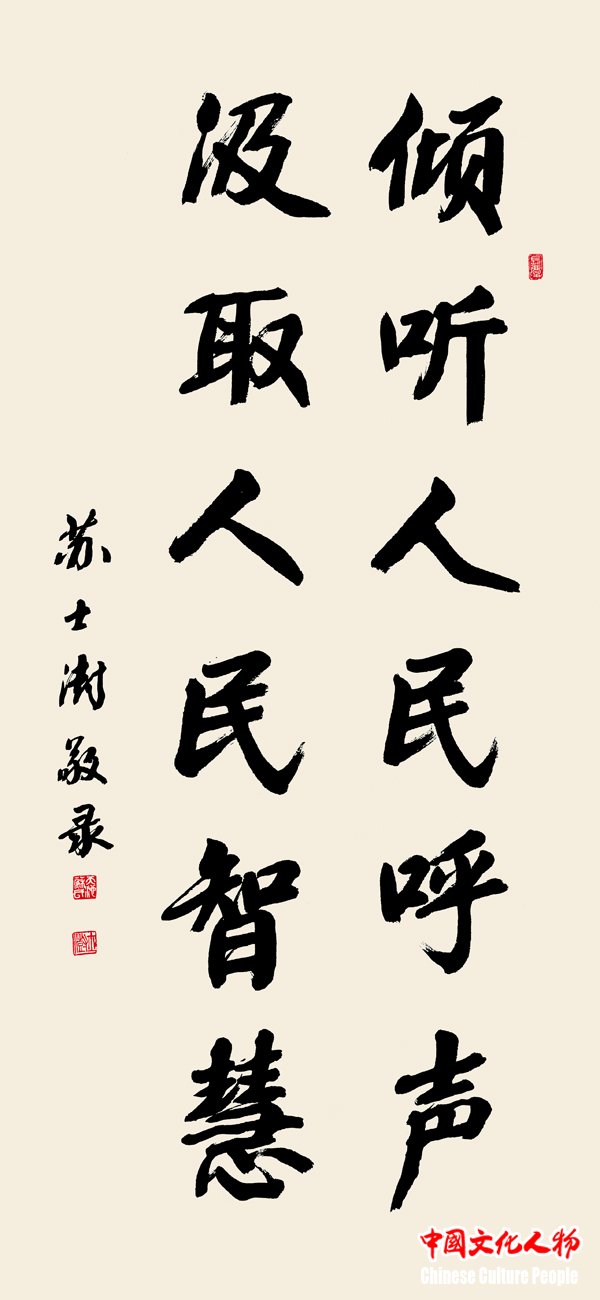 倾听人民呼声
汲取人民智慧
苏士澍敬录
中國文化人物
Chinese Culture People